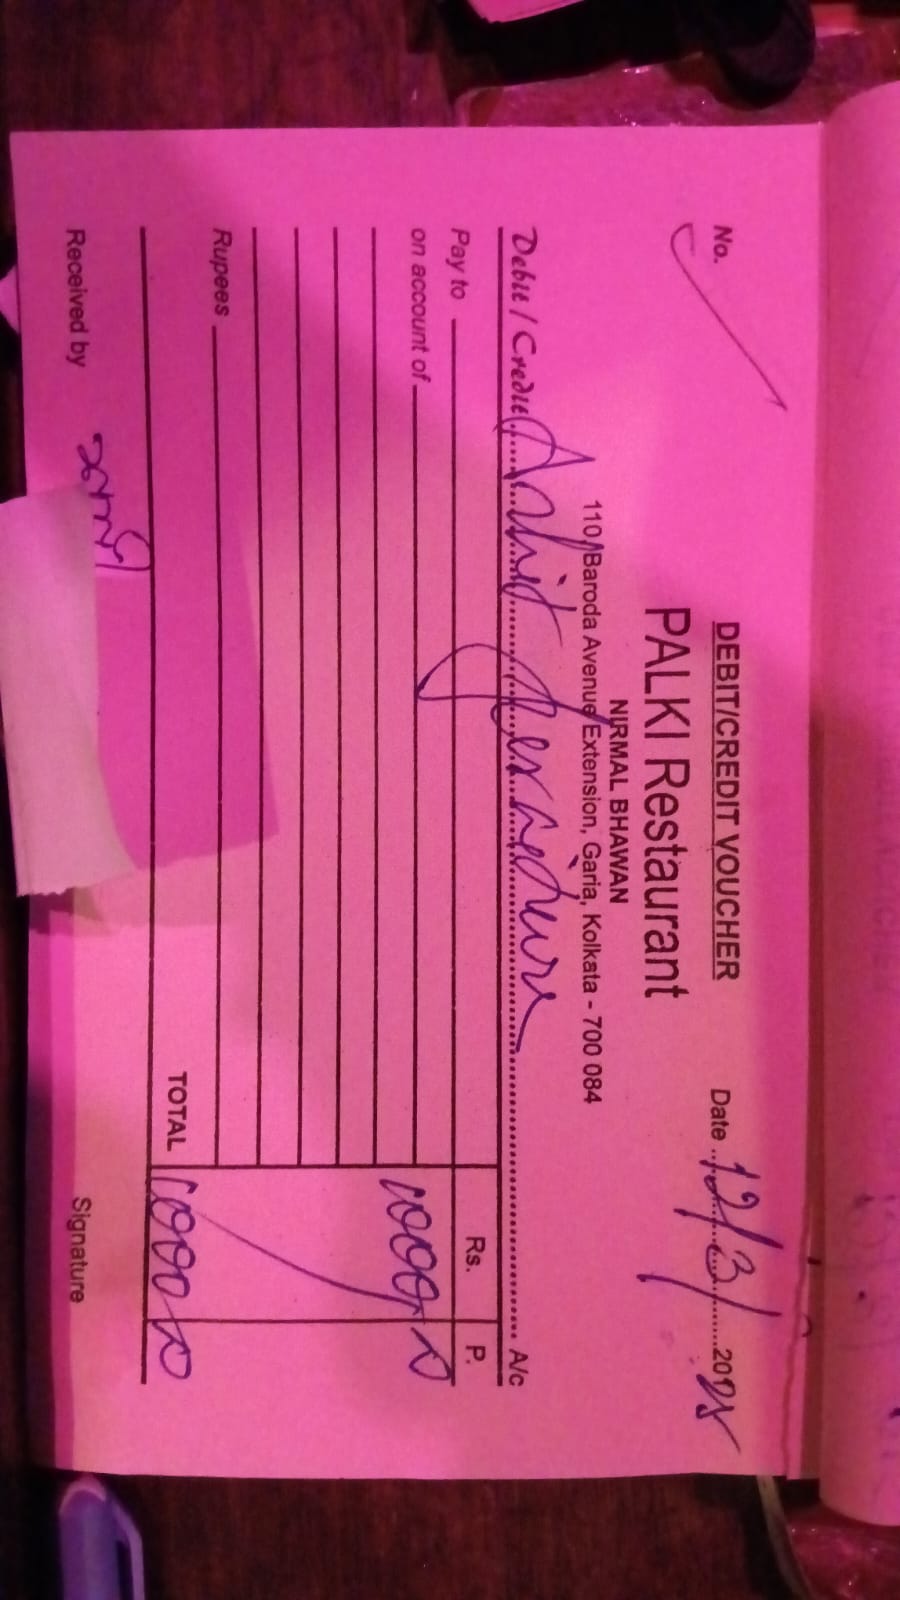 DEBIT/CREDIT VOUCHER
No.
Date 12/3/2025
PALKI Restaurant
NIRMAL BHAWAN
110/Baroda Avenue Extension, Garia, Kolkata - 700 084
Debit / Credit A/c
Rs. P.
Pay to
on account of
10000
Rupees
TOTAL 10000
Received by
Signature